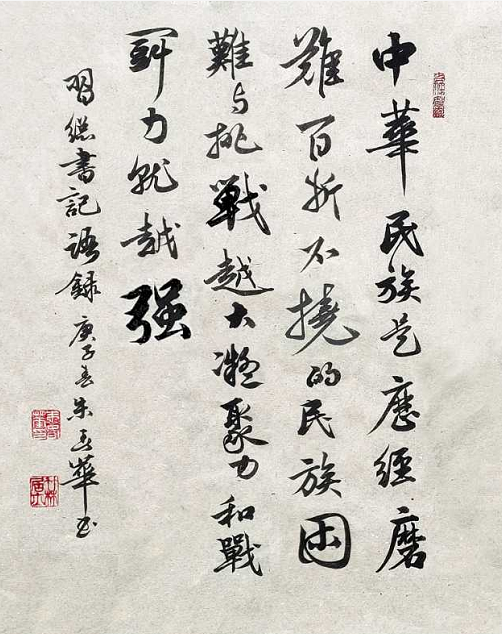 中華民族是歷經磨
難百折不撓的民族困
難与挑戰越大凝聚力和戰
鬥力就越强
習總書記語録 庚子春朱玉華书